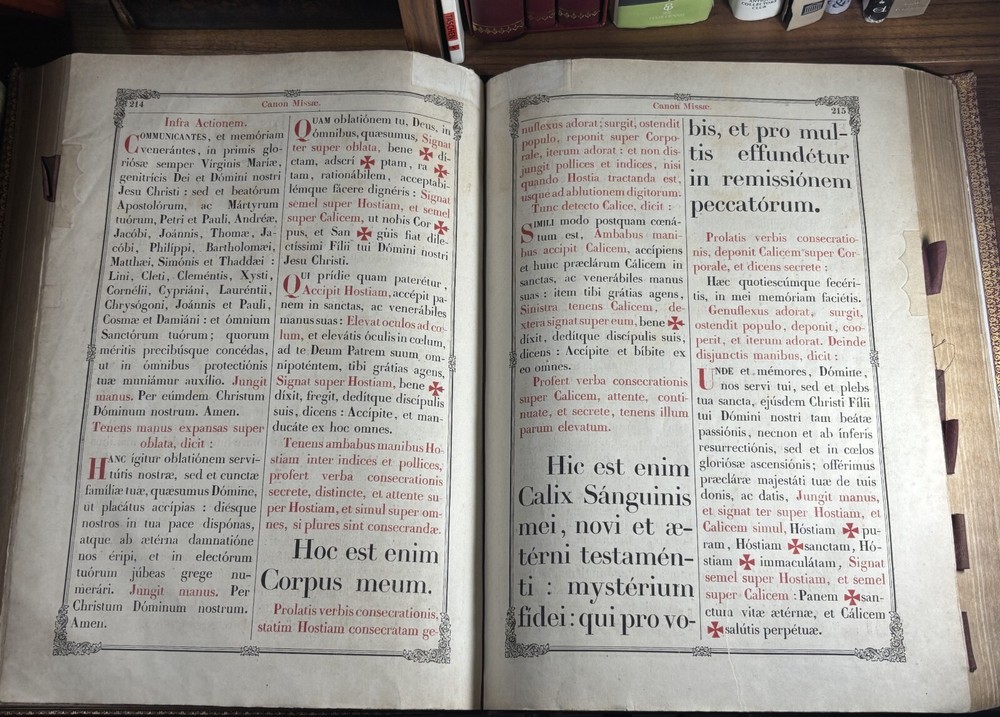 214
Canon Missæ.
Infra Actionem.
COMMUNICANTES, et memóriam
venerántes, in primis glo-
riósæ semper Virginis Maríæ,
genitricis Dei et Dómini nostri
Jesu Christi : sed et beatórum
Apostolórum, ac Mártyrum
tuórum, Petri et Pauli, Andréæ,
Jacóbi, Joánnis, Thomæ, Ja-
cóbi, Philippi, Bartholomæi,
Matthæi, Simónis et Thaddæi :
Lini, Cleti, Cleméntis, Xysti,
Cornélii, Cypriáni, Lauréntii,
Chrysógoni, Joánnis et Pauli,
Cosmæ et Damiáni : et ómnium
Sanctórum tuórum ; quorum
méritis precibúsque concédas,
ut in ómnibus protectiónis
tuæ muniámur auxílio. Jungit
manus. Per eúmdem Christum
Dóminum nostrum. Amen.
Tenens manus expansas super
oblata, dicit :
HANC ígitur oblatiónem servi-
tútis nostræ, sed et cunctæ
famíliæ tuæ, quæsumus Dómine,
ut placátus accípias : diésque
nostros in tua pace dispónas,
atque ab ætérna damnatióne
nos éripi, et in electórum
tuórum júbeas grege nu-
merári. Jungit manus. Per
Christum Dóminum nostrum.
Amen.
QUAM oblatiónem tu, Deus, in
ómnibus, quæsumus, Signat
ter super oblata, bene ✠ di-
ctam, adscri ✠ ptam, ra ✠
tam, rationábilem, acceptabi-
lémque fácere dignéris : Signat
semel super Hostiam, et semel
super Calicem, ut nobis Cor ✠
pus, et San ✠ guis fiat dile-
ctíssimi Fílii tui Dómini nostri
Jesu Christi.
QUI prídie quam paterétur,
Accipit Hostiam, accépit pa-
nem in sanctas, ac venerábiles
manus suas : Elevat oculos ad cœ-
lum, et elevátis óculis in cœlum,
ad te Deum Patrem suum om-
nipoténtem, tibi grátias agens,
Signat super Hostiam, bene ✠
dixit, fregit, dedítque discípulis
suis, dicens : Accípite, et man-
ducáte ex hoc omnes.
Tenens ambabus manibus Ho-
stiam inter indices et pollices,
profert verba consecrationis
secrete, distincte, et attente su-
per Hostiam, et simul super om-
nes, si plures sint consecrandæ.
Hoc est enim
Corpus meum.
Prolatis verbis consecrationis,
statim Hostiam consecratam ge-
Canon Missæ.
215
nuflexus adorat; surgit, ostendit
populo, reponit super Corpo-
rale, iterum adorat : et non dis-
jungit pollices et indices, nisi
quando Hostia tractanda est,
usque ad ablutionem digitorum.
Tunc detecto Calice, dicit :
SIMILI modo postquam cœná-
tum est, Ambabus mani-
bus accipit Calicem, accípiens
et hunc præclárum Cálicem in
sanctas, ac venerábiles manus
suas : item tibi grátias agens,
Sinistra tenens Calicem, de-
xtera signat super eum, bene ✠
dixit, dedítque discípulis suis,
dicens : Accípite et bíbite ex
eo omnes.
Profert verba consecrationis
super Calicem, attente, conti-
nuate, et secrete, tenens illum
parum elevatum.
Hic est enim
Calix Sánguinis
mei, novi et æ-
térni testamén-
ti : mystérium
fidei : qui pro vo-
bis, et pro mul-
tis effundétur
in remissiónem
peccatórum.
Prolatis verbis consecratio-
nis, deponit Calicem super Cor-
porale, et dicens secrete :
Hæc quotiescúmque fecéri-
tis, in mei memóriam faciétis.
Genuflexus adorat, surgit,
ostendit populo, deponit, coo-
perit, et iterum adorat. Deinde
disjunctis manibus, dicit :
UNDE et mémores, Dómine,
nos servi tui, sed et plebs
tua sancta, ejúsdem Christi Fílii
tui Dómini nostri tam beátæ
passiónis, necnon et ab ínferis
resurrectiónis, sed et in cœlos
gloriósæ ascensiónis ; offérimus
præcláræ majestáti tuæ de tuis
donis, ac datis, Jungit manus,
et signat ter super Hostiam, et
Calicem simul, Hóstiam ✠ pu-
ram, Hóstiam ✠ sanctam, Hó-
stiam ✠ immaculátam, Signat
semel super Hostiam, et semel
super Calicem : Panem ✠ san-
ctum vitæ ætérnæ, et Cálicem
✠ salútis perpétuæ.